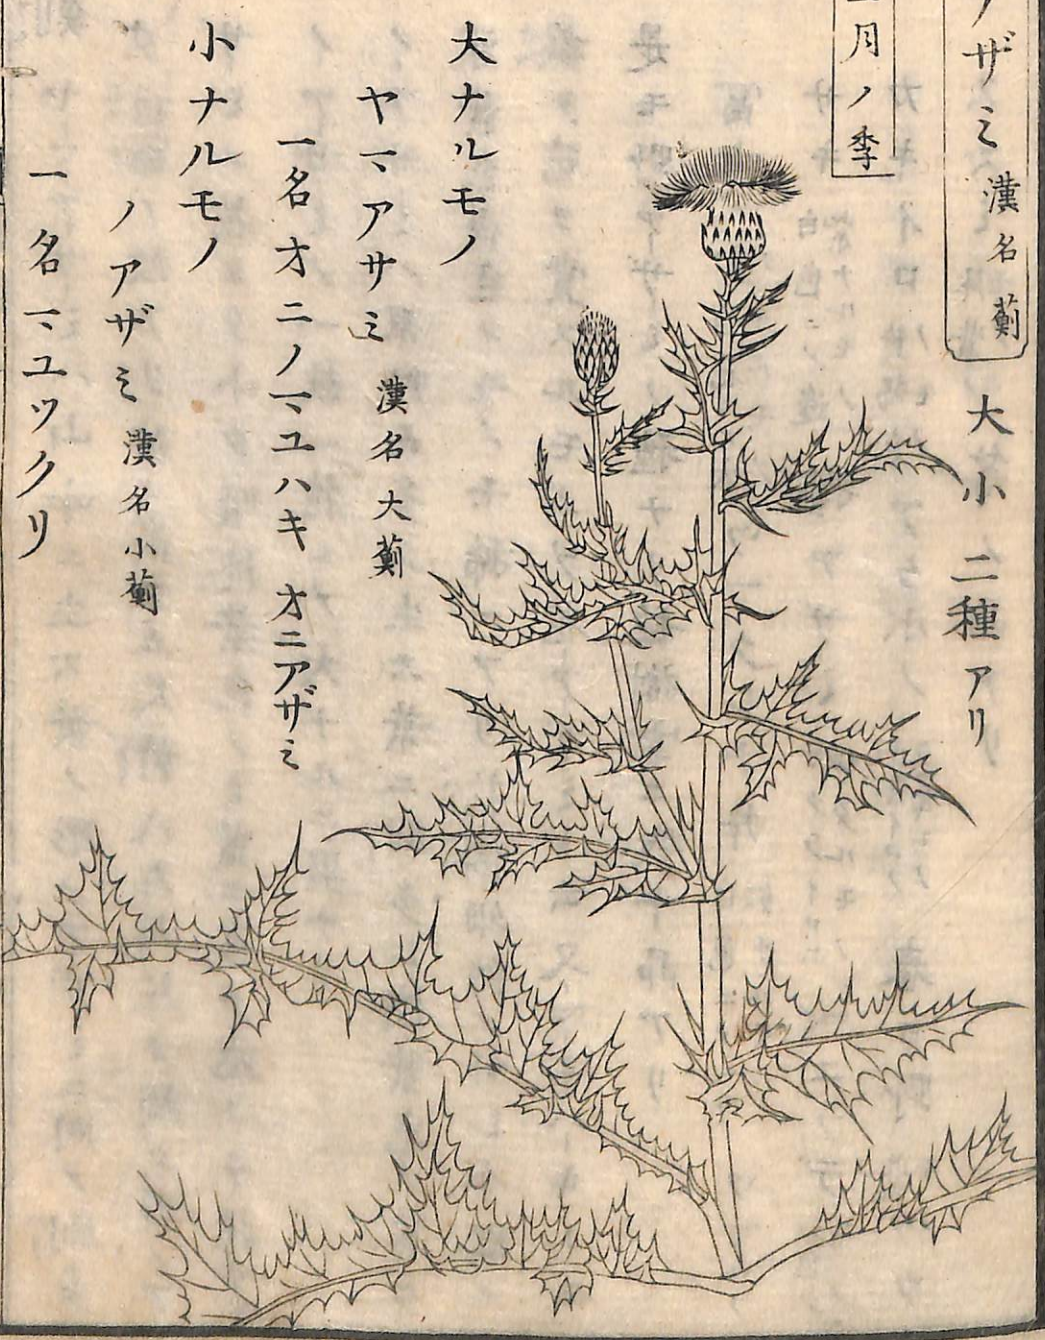 アザミ 漢名 薊
月ノ季
大小 二種アリ
大ナルモノ
ヤマアサミ 漢名 大薊
一名オニノマユハキ オニアザミ
小ナルモノ
ノアザミ 漢名 小薊
一名マユツクリ